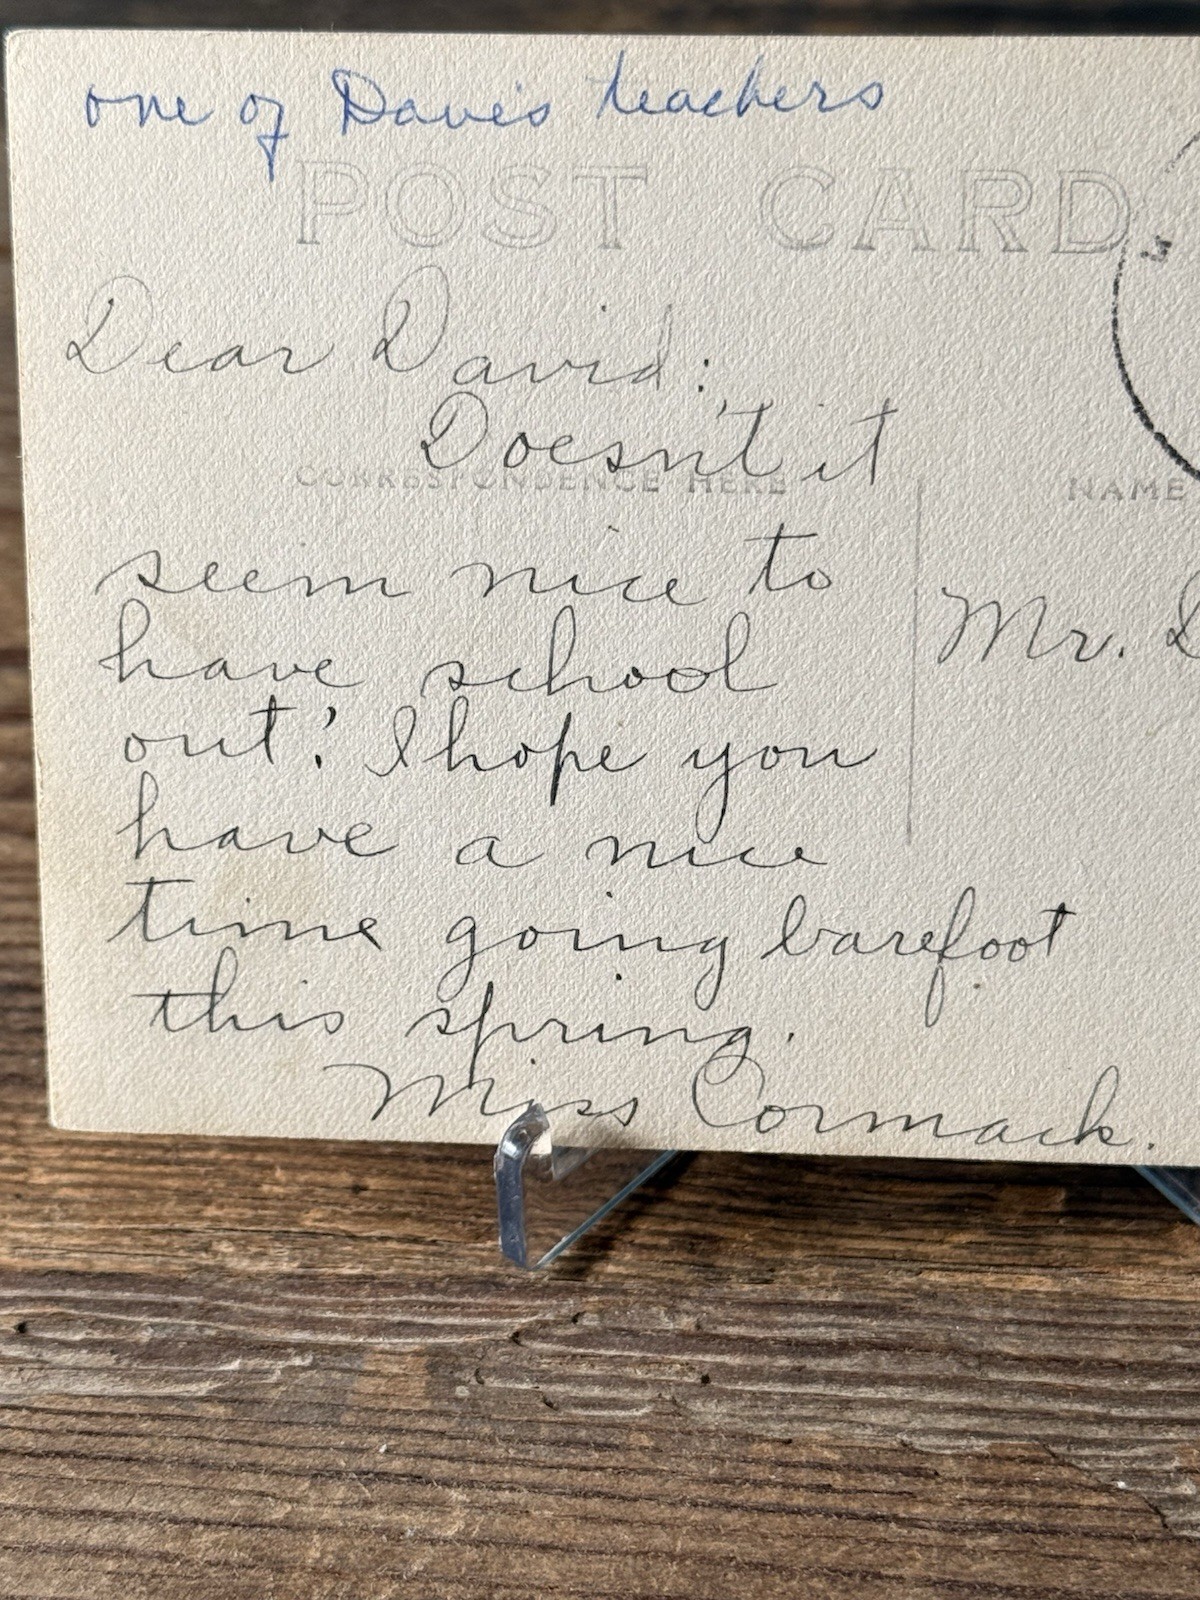 one of Dave's teachers
POST CARD
Dear David:
Doesn't it
CORRESPONDENCE HERE
NAME
seem nice to
have school
Mr.
out? I hope you
have a nice
time going barefoot
this spring.
Miss Cormack.